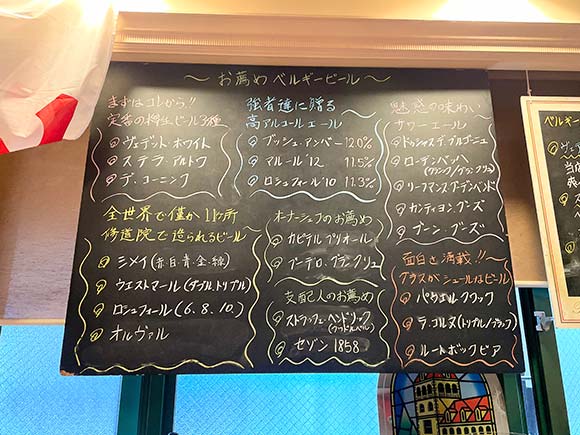 ～お薦めベルギービール～
まずはコレから!!
定番の樽生ビール3種
ヴェデット・ホワイト
ステラ・アルトワ
デ・コーニング
強者達に贈る
高アルコールエール
ブッシュ・アンバー 12.0%
マルール'12 11.5%
ロシュフォール'10 11.3%
魅惑の味わい
サワーエール
ドゥシャス・デ・ブルゴーニュ
ローデンバッハ
(クラシック/グランクリュ)
リーフマンス・グーデンバンド
カンティヨン・グーズ
ブーン・グーズ
全世界で僅か11ヶ所
修道院で造られるビール
シメイ(赤・白・青・金・緑)
ウエストマール(ダブル、トリプル)
ロシュフォール(6.8.10.)
オルヴァル
オーナーシェフのお薦め
カピテル プリオール
ブーテロ・グランクリュ
支配人のお薦め
ストラッフェ・ヘンドリック
セゾン 1858
面白さ満載!!
グラスがシュールなビール
パウエル クワック
ラ・ゴルヌ(トリプル/ブラック)
ルートボックビア
ベルギー